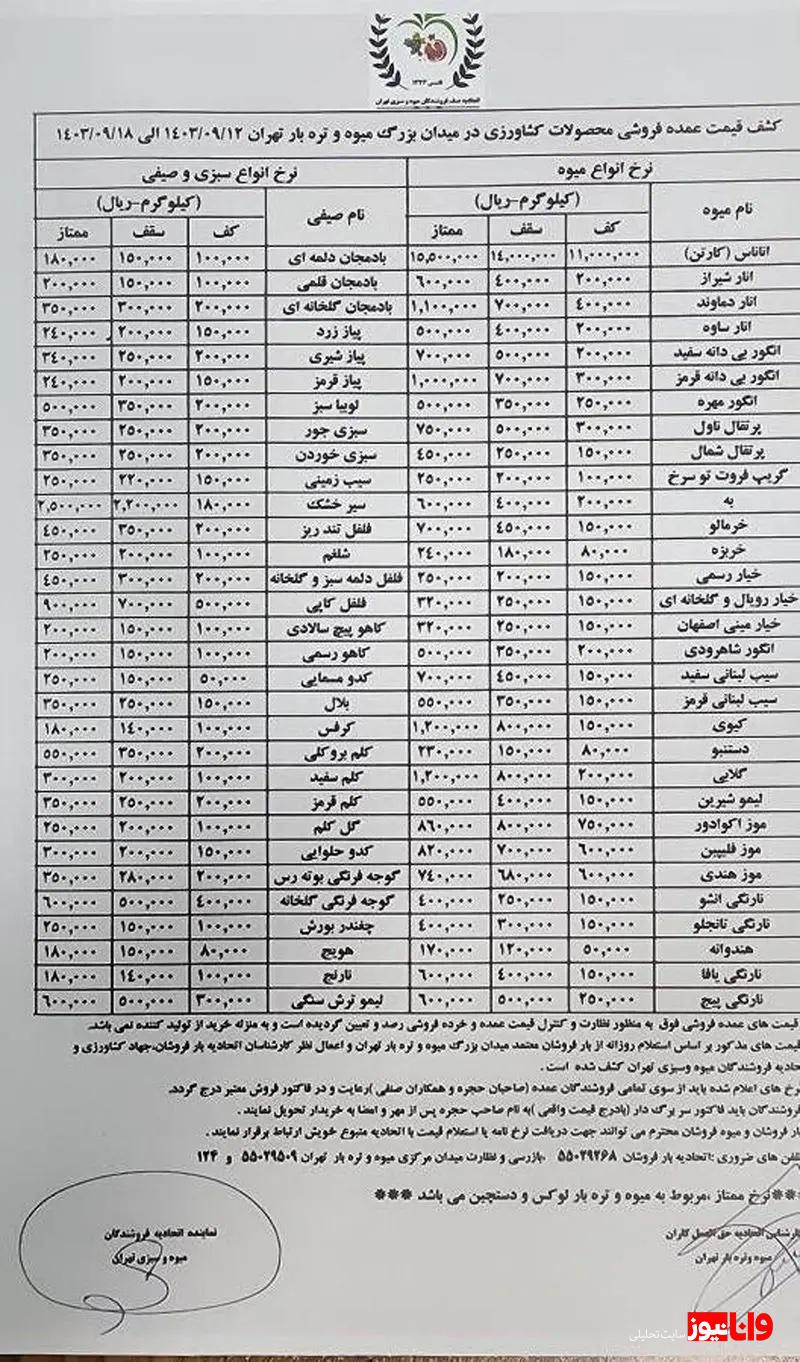 تاسیس ۱۳۲۳
اتحادیه صنف فروشندگان میوه و سبزی تهران
کشف قیمت عمده فروشی محصولات کشاورزی در میدان بزرگ میوه و تره بار تهران ۱۴۰۳/۰۹/۱۲ الی ۱۴۰۳/۰۹/۱۸
نرخ انواع میوه نرخ انواع سبزی و صیفی
نام میوه (کیلوگرم-ریال) نام صیفی (کیلوگرم-ریال)
کف سقف ممتاز کف سقف ممتاز
اناناس (کارتن) ۱۱,۰۰۰,۰۰۰ ۱۴,۰۰۰,۰۰۰ ۱۵,۵۰۰,۰۰۰ بادمجان دلمه ای ۱۰۰,۰۰۰ ۱۵۰,۰۰۰ ۱۸۰,۰۰۰
انار شیراز ۲۰۰,۰۰۰ ۴۰۰,۰۰۰ ۶۰۰,۰۰۰ بادمجان قلمی ۱۰۰,۰۰۰ ۱۵۰,۰۰۰ ۲۰۰,۰۰۰
انار دماوند ۴۰۰,۰۰۰ ۷۰۰,۰۰۰ ۱,۱۰۰,۰۰۰ بادمجان گلخانه ای ۲۰۰,۰۰۰ ۳۰۰,۰۰۰ ۳۵۰,۰۰۰
انار ساوه ۲۰۰,۰۰۰ ۴۰۰,۰۰۰ ۵۰۰,۰۰۰ پیاز زرد ۱۵۰,۰۰۰ ۲۰۰,۰۰۰ ۲۴۰,۰۰۰
انگور بی دانه سفید ۲۰۰,۰۰۰ ۵۰۰,۰۰۰ ۷۰۰,۰۰۰ پیاز شیری ۲۰۰,۰۰۰ ۲۵۰,۰۰۰ ۳۴۰,۰۰۰
انگور بی دانه قرمز ۳۰۰,۰۰۰ ۷۰۰,۰۰۰ ۱,۰۰۰,۰۰۰ پیاز قرمز ۱۵۰,۰۰۰ ۲۰۰,۰۰۰ ۲۴۰,۰۰۰
انگور مهره ۲۵۰,۰۰۰ ۳۵۰,۰۰۰ ۵۰۰,۰۰۰ لوبیا سبز ۲۰۰,۰۰۰ ۳۵۰,۰۰۰ ۵۰۰,۰۰۰
پرتقال ناول ۳۰۰,۰۰۰ ۵۰۰,۰۰۰ ۷۵۰,۰۰۰ سبزی جور ۲۰۰,۰۰۰ ۲۵۰,۰۰۰ ۳۵۰,۰۰۰
پرتقال شمال ۱۵۰,۰۰۰ ۲۵۰,۰۰۰ ۴۵۰,۰۰۰ سبزی خوردن ۲۰۰,۰۰۰ ۲۵۰,۰۰۰ ۳۵۰,۰۰۰
گریپ فروت تو سرخ ۱۰۰,۰۰۰ ۲۰۰,۰۰۰ ۲۵۰,۰۰۰ سیب زمینی ۱۵۰,۰۰۰ ۲۲۰,۰۰۰ ۲۵۰,۰۰۰
به ۲۰۰,۰۰۰ ۴۰۰,۰۰۰ ۶۰۰,۰۰۰ سیر خشک ۱۸۰,۰۰۰ ۲,۲۰۰,۰۰۰ ۲,۵۰۰,۰۰۰
خرمالو ۱۵۰,۰۰۰ ۴۵۰,۰۰۰ ۷۰۰,۰۰۰ فلفل تند ریز ۲۰۰,۰۰۰ ۳۵۰,۰۰۰ ۴۵۰,۰۰۰
خربزه ۸۰,۰۰۰ ۱۸۰,۰۰۰ ۲۴۰,۰۰۰ شلغم ۱۰۰,۰۰۰ ۲۰۰,۰۰۰ ۲۵۰,۰۰۰
خیار رسمی ۱۵۰,۰۰۰ ۲۰۰,۰۰۰ ۲۵۰,۰۰۰ فلفل دلمه سبز و گلخانه ۲۰۰,۰۰۰ ۳۰۰,۰۰۰ ۴۵۰,۰۰۰
خیار رویال و گلخانه ای ۱۵۰,۰۰۰ ۲۵۰,۰۰۰ ۳۲۰,۰۰۰ فلفل کاپی ۵۰۰,۰۰۰ ۷۰۰,۰۰۰ ۹۰۰,۰۰۰
خیار مینی اصفهان ۱۵۰,۰۰۰ ۲۵۰,۰۰۰ ۳۲۰,۰۰۰ کاهو پیچ سالادی ۱۰۰,۰۰۰ ۱۵۰,۰۰۰ ۲۰۰,۰۰۰
انگور شاهرودی ۲۰۰,۰۰۰ ۳۵۰,۰۰۰ ۵۰۰,۰۰۰ کاهو رسمی ۱۰۰,۰۰۰ ۱۵۰,۰۰۰ ۲۰۰,۰۰۰
سیب لبنانی سفید ۱۵۰,۰۰۰ ۴۵۰,۰۰۰ ۷۰۰,۰۰۰ کدو مسمایی ۵۰,۰۰۰ ۱۵۰,۰۰۰ ۲۵۰,۰۰۰
سیب لبنانی قرمز ۱۵۰,۰۰۰ ۳۵۰,۰۰۰ ۵۵۰,۰۰۰ بلال ۱۵۰,۰۰۰ ۲۵۰,۰۰۰ ۳۵۰,۰۰۰
کیوی ۱۵۰,۰۰۰ ۸۰۰,۰۰۰ ۱,۲۰۰,۰۰۰ کرفس ۱۰۰,۰۰۰ ۱۴۰,۰۰۰ ۱۸۰,۰۰۰
دستنبو ۸۰,۰۰۰ ۱۵۰,۰۰۰ ۲۳۰,۰۰۰ کلم بروکلی ۲۰۰,۰۰۰ ۳۵۰,۰۰۰ ۵۵۰,۰۰۰
گلابی ۲۰۰,۰۰۰ ۸۰۰,۰۰۰ ۱,۲۰۰,۰۰۰ کلم سفید ۱۰۰,۰۰۰ ۲۰۰,۰۰۰ ۳۰۰,۰۰۰
لیمو شیرین ۱۵۰,۰۰۰ ۴۰۰,۰۰۰ ۵۵۰,۰۰۰ کلم قرمز ۲۰۰,۰۰۰ ۲۵۰,۰۰۰ ۳۵۰,۰۰۰
موز اکوادور ۷۵۰,۰۰۰ ۸۰۰,۰۰۰ ۸۶۰,۰۰۰ گل کلم ۱۰۰,۰۰۰ ۲۰۰,۰۰۰ ۲۵۰,۰۰۰
موز فلیپین ۶۰۰,۰۰۰ ۷۰۰,۰۰۰ ۸۲۰,۰۰۰ کدو حلوایی ۱۵۰,۰۰۰ ۲۰۰,۰۰۰ ۳۰۰,۰۰۰
موز هندی ۶۰۰,۰۰۰ ۶۸۰,۰۰۰ ۷۴۰,۰۰۰ گوجه فرنگی بوته رس ۲۰۰,۰۰۰ ۲۸۰,۰۰۰ ۳۵۰,۰۰۰
نارنگی انشو ۱۵۰,۰۰۰ ۲۵۰,۰۰۰ ۴۰۰,۰۰۰ گوجه فرنگی گلخانه ۴۰۰,۰۰۰ ۵۰۰,۰۰۰ ۶۰۰,۰۰۰
نارنگی تانجلو ۱۵۰,۰۰۰ ۳۰۰,۰۰۰ ۴۰۰,۰۰۰ چغندر بورش ۱۰۰,۰۰۰ ۱۵۰,۰۰۰ ۲۵۰,۰۰۰
هندوانه ۵۰,۰۰۰ ۱۲۰,۰۰۰ ۱۷۰,۰۰۰ هویج ۸۰,۰۰۰ ۱۵۰,۰۰۰ ۱۸۰,۰۰۰
نارنگی یافا ۱۵۰,۰۰۰ ۴۰۰,۰۰۰ ۶۰۰,۰۰۰ نارنج ۱۰۰,۰۰۰ ۱۴۰,۰۰۰ ۱۸۰,۰۰۰
نارنگی پیج ۲۵۰,۰۰۰ ۵۰۰,۰۰۰ ۶۰۰,۰۰۰ لیمو ترش سنگی ۳۰۰,۰۰۰ ۵۰۰,۰۰۰ ۶۰۰,۰۰۰
قیمت های عمده فروشی فوق به منظور نظارت و کنترل قیمت عمده و خرده فروشی رصد و تعیین گردیده است و به منزله خرید از تولید کننده نمی باشد.
قیمت های مذکور بر اساس استعلام روزانه از بار فروشان معتمد میدان بزرگ میوه و تره بار تهران و اعمال نظر کارشناسان اتحادیه بار فروشان،جهاد کشاورزی و
حادیه فروشندگان میوه وسبزی تهران کشف شده است .
نرخ های اعلام شده باید از سوی تمامی فروشندگان عمده (صاحبان حجره و همکاران صنفی )رعایت و در فاکتور فروش معتبر درج گردد.
فروشندگان باید فاکتور سر برگ دار (بادرج قیمت واقعی )به نام صاحب حجره پس از مهر و امضا به خریدار تحویل نمایند .
ار فروشان و میوه فروشان محترم می توانند جهت دریافت نرخ نامه یا استعلام قیمت با اتحادیه متبوع خویش ارتباط برقرار نمایند .
تلفن های ضروری :اتحادیه بار فروشان ۵۵۰۲۹۲۶۸ ،بازرسی و نظارت میدان مرکزی میوه و تره بار تهران ۵۵۰۲۹۵۰۹ و ۱۲۴
***نرخ ممتاز ،مربوط به میوه و تره بار لوکس و دستچین می باشد ***
کارشناس اتحادیه حق العمل کاران
میوه وتره بار تهران
نماینده اتحادیه فروشندگان
میوه و سبزی تهران
وانانیوز
سایت تحلیلی